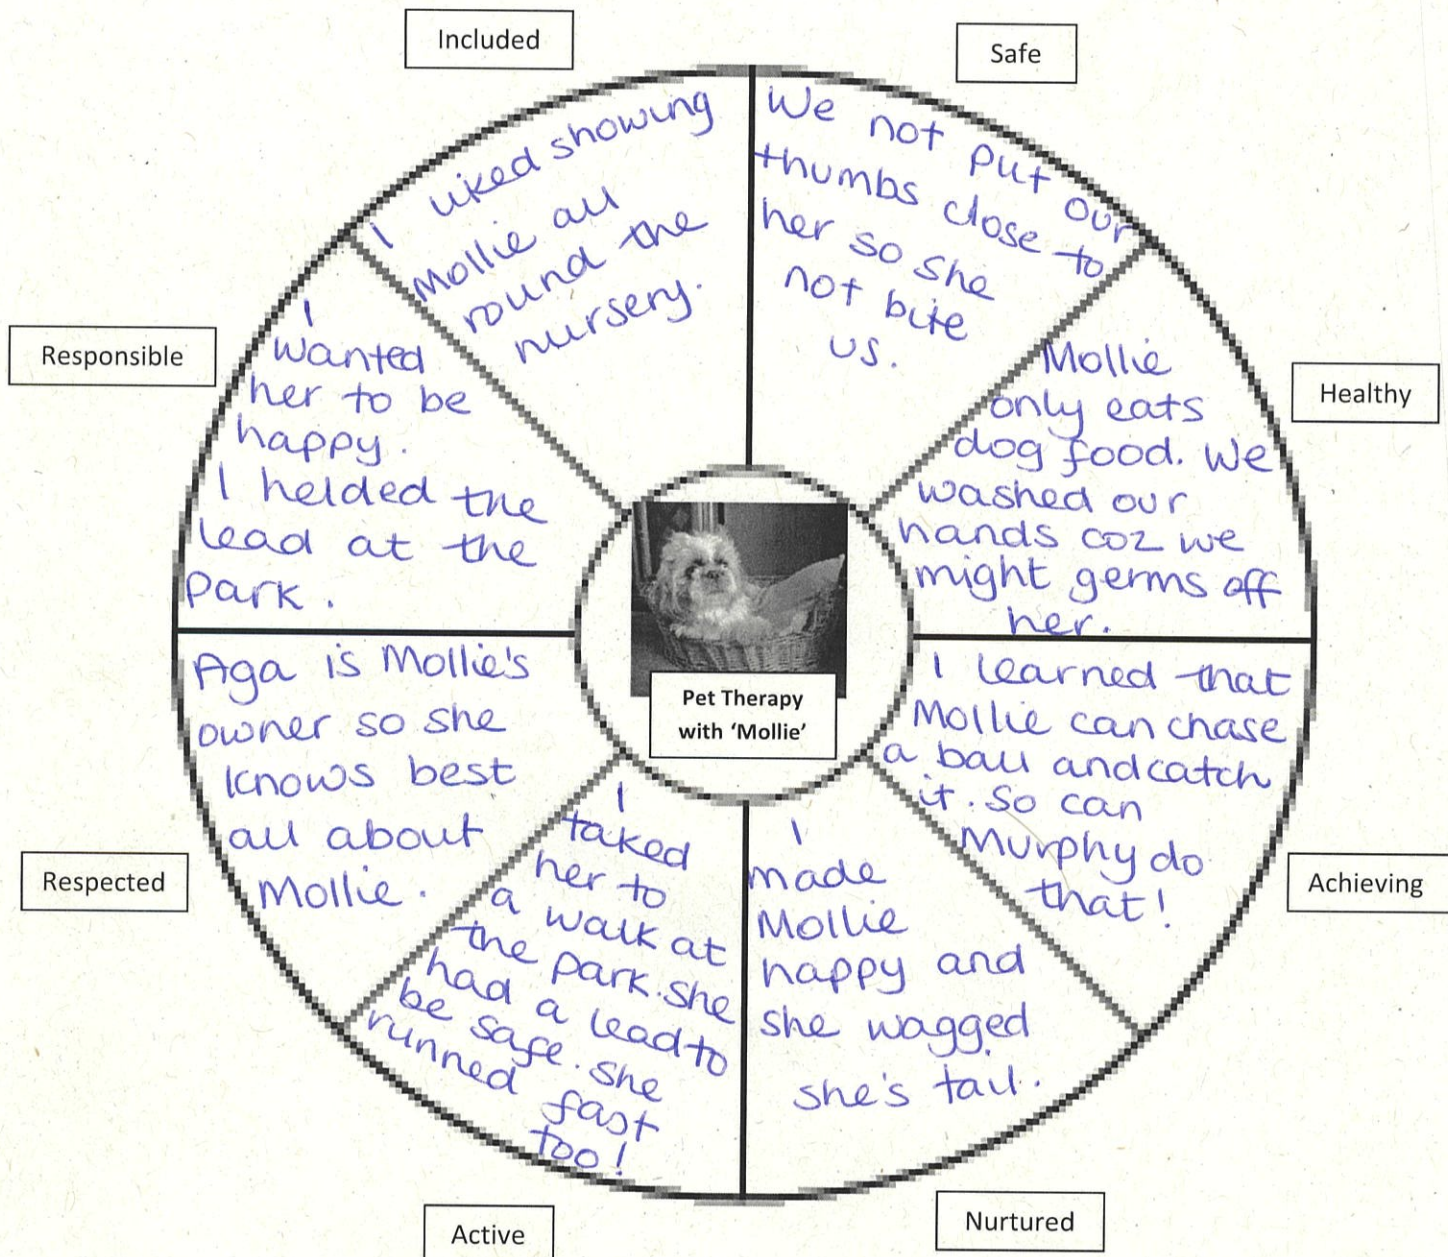 Included
I liked showing
Mollie all
round the
nursery.
Safe
We not put our
thumbs close to
her so she
not bite
us.
Healthy
Mollie
only eats
dog food. We
washed our
hands coz we
might germs off
her.
Achieving
I learned that
Mollie can chase
a ball and catch
it. So can
Murphy do
that!
Nurtured
I
made
Mollie
happy and
she wagged
she's tail.
Active
I
taked
her to
a walk at
the park. she
had a lead to
be safe. she
runned fast
too!
Respected
Aga is Mollie's
owner so she
knows best
all about
Mollie.
Responsible
I
wanted
her to be
happy.
I helded the
lead at the
park.
Pet Therapy
with ‘Mollie’